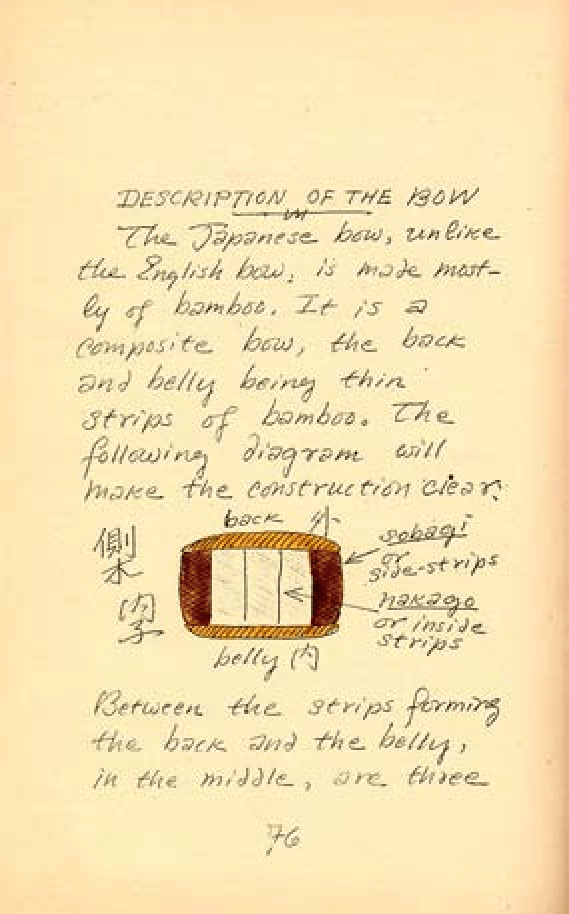 DESCRIPTION OF THE BOW
The Japanese bow, unlike
the English bow, is made most-
ly of bamboo. It is a
composite bow, the back
and belly being thin
strips of bamboo. The
following diagram will
make the construction clear:
back 外
側木
内子
sobagi
or
side-strips
nakago
or inside
strips
belly 内
Between the strips forming
the back and the belly,
in the middle, are three
76